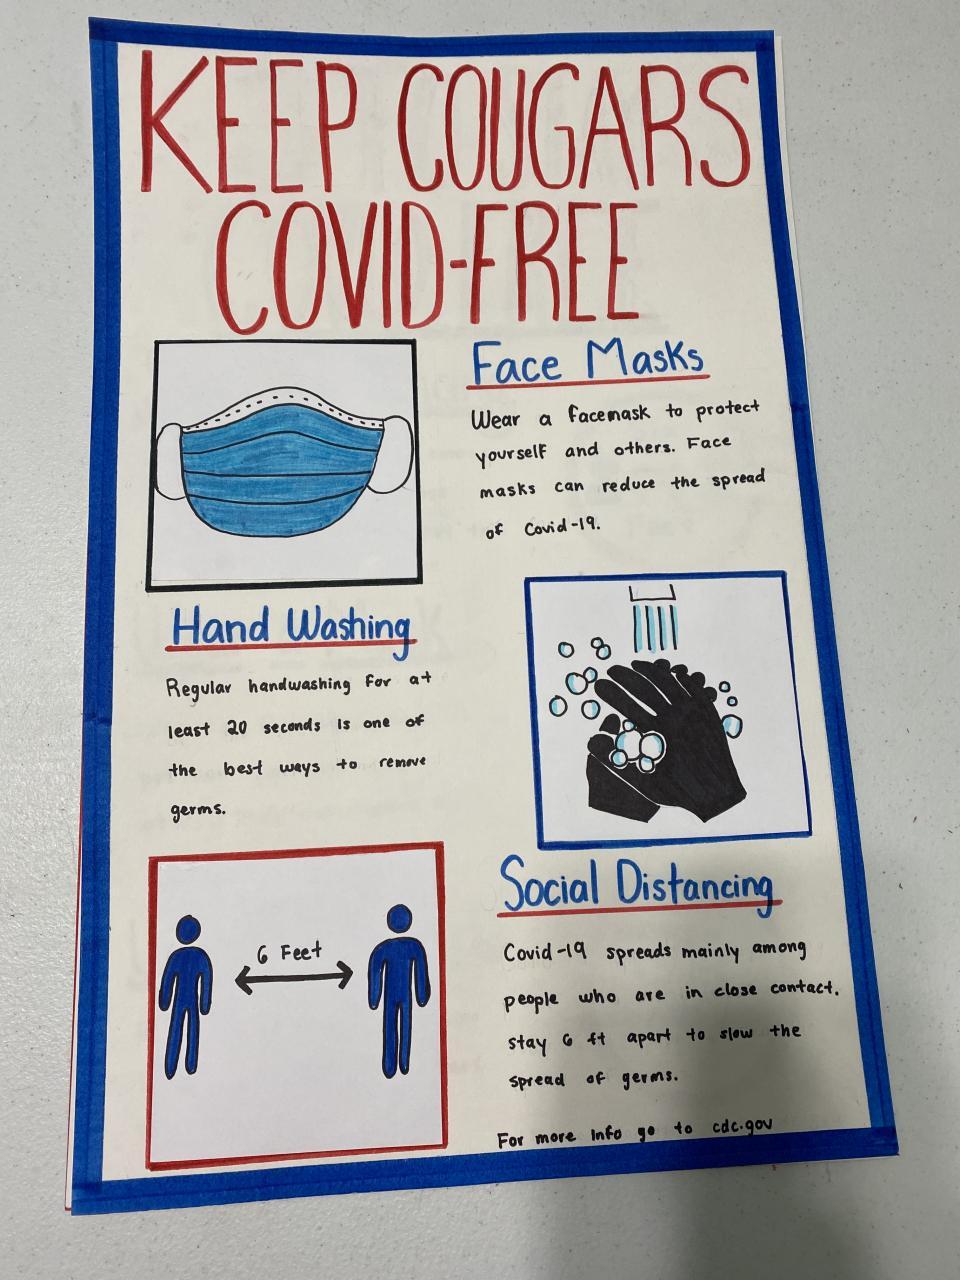 KEEP COUGARS
COVID-FREE
Face Masks
Wear a facemask to protect
yourself and others. Face
masks can reduce the spread
of Covid-19.
Hand Washing
Regular handwashing for at
least 20 seconds is one of
the best ways to remove
germs.
6 Feet
Social Distancing
Covid-19 spreads mainly among
people who are in close contact.
stay 6 ft apart to slow the
spread of germs.
For more info go to cdc.gov